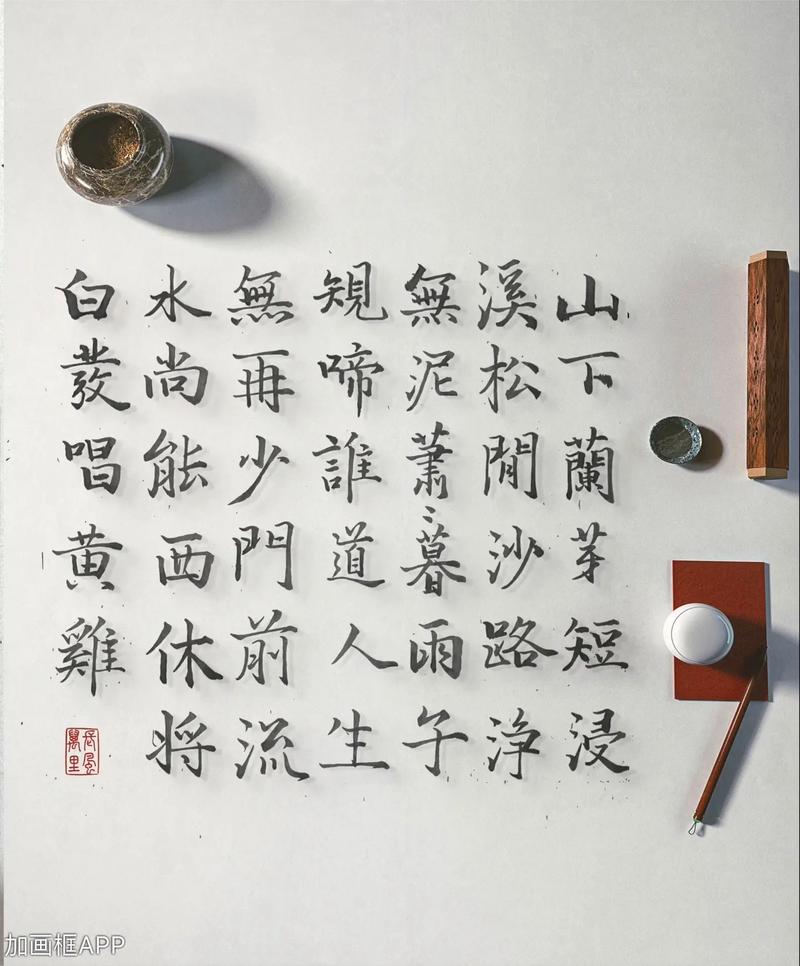 山下蘭芽短浸
溪松間沙路淨
無泥蕭〻暮雨子
規啼誰道人生
無再少門前流
水尚能西休將
白發唱黃雞
長風萬里
加画框APP